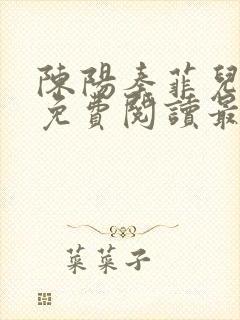 陳陽秦菲兒
免費閱讀最
菜菜子